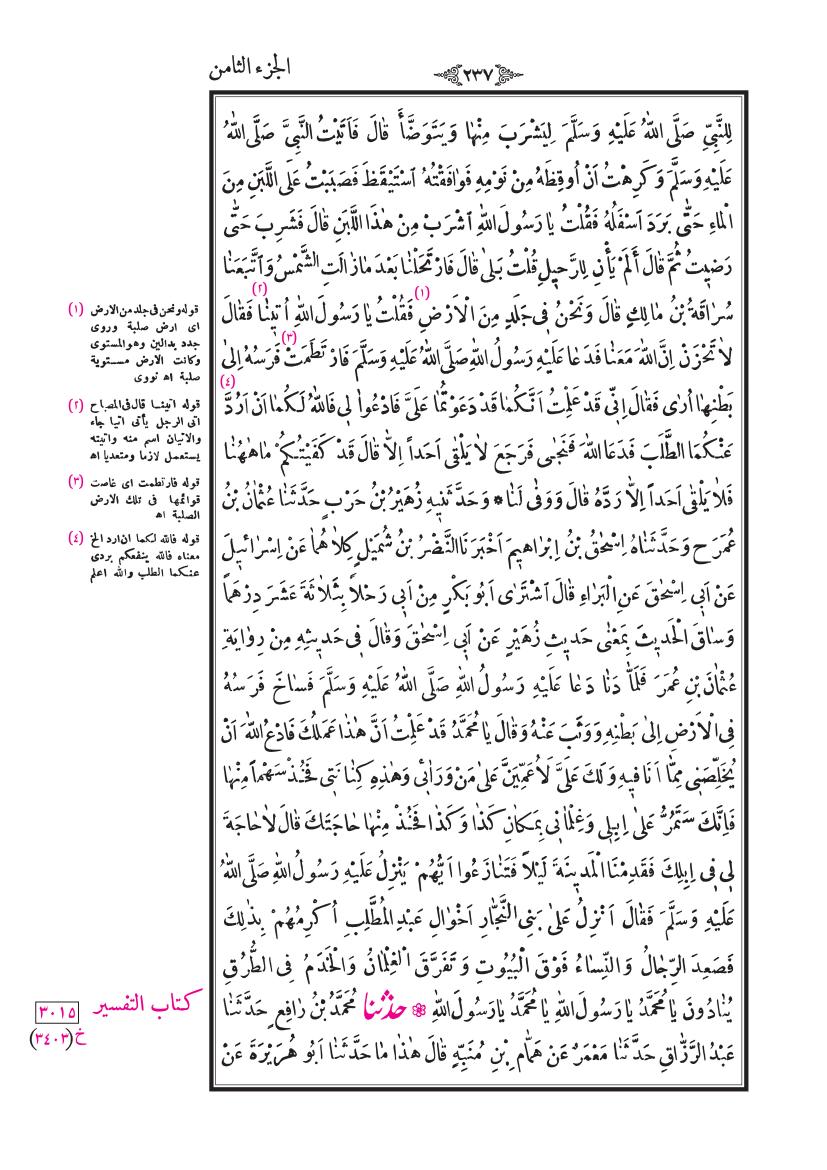 الجزء الثامن
٢٣٧
لِلنَّبِيِّ صَلَّى اللّٰهُ عَلَيْهِ وَسَلَّمَ لِيَشْرَبَ مِنْهَا وَيَتَوَضَّأَ قَالَ فَأَتَيْتُ النَّبِيَّ صَلَّى اللّٰهُ
عَلَيْهِ وَسَلَّمَ وَكَرِهْتُ اَنْ اُوقِظَهُ مِنْ نَوْمِهِ فَوَافَقْتُهُ اسْتَيْقَظَ فَصَبَبْتُ عَلَى اللَّبَنِ مِنَ
الْمَاءِ حَتَّى بَرَدَ اَسْفَلُهُ فَقُلْتُ يَا رَسُولَ اللّٰهِ اشْرَبْ مِنْ هٰذَا اللَّبَنِ قَالَ فَشَرِبَ حَتَّى
رَضِيتُ ثُمَّ قَالَ اَلَمْ يَأْنِ لِلرَّحِيلِ قُلْتُ بَلٰى قَالَ فَارْتَحَلْنَا بَعْدَ مَا زَالَتِ الشَّمْسُ وَاتَّبَعَنَا
سُرَاقَةُ بْنُ مَالِكٍ قَالَ وَنَحْنُ فِى جَلَدٍ مِنَ الْاَرْضِ (١) فَقُلْتُ يَا رَسُولَ اللّٰهِ اُتِينَا (٢) فَقَالَ
لَا تَحْزَنْ اِنَّ اللّٰهَ مَعَنَا فَدَعَا عَلَيْهِ رَسُولُ اللّٰهِ صَلَّى اللّٰهُ عَلَيْهِ وَسَلَّمَ فَارْتَطَمَتْ (٣) فَرَسُهُ اِلٰى
بَطْنِهَا اُرٰى فَقَالَ اِنِّى قَدْ عَلِمْتُ اَنَّكُمَا قَدْ دَعَوْتُمَا عَلَىَّ فَادْعُوَا لِى فَاللّٰهُ لَكُمَا اَنْ اَرُدَّ (٤)
عَنْكُمَا الطَّلَبَ فَدَعَا اللّٰهَ فَنَجٰى فَرَجَعَ لَا يَلْقٰى اَحَداً اِلَّا قَالَ قَدْ كَفَيْتُكُمْ مَا هٰهُنَا
فَلَا يَلْقٰى اَحَداً اِلَّا رَدَّهُ قَالَ وَوَفٰى لَنَا * وَحَدَّثَنِيهِ زُهَيْرُ بْنُ حَرْبٍ حَدَّثَنَا عُثْمَانُ بْنُ
عُمَرَ ح وَحَدَّثَنَاهُ اِسْحٰقُ بْنُ اِبْرَاهِيمَ اَخْبَرَنَا النَّضْرُ بْنُ شُمَيْلٍ كِلَاهُمَا عَنْ اِسْرَائِيلَ
عَنْ اَبِى اِسْحٰقَ عَنِ الْبَرَاءِ قَالَ اشْتَرٰى اَبُو بَكْرٍ مِنْ اَبِى رَحْلاً بِثَلَاثَةَ عَشَرَ دِرْهَمًا
وَسَاقَ الْحَدِيثَ بِمَعْنٰى حَدِيثِ زُهَيْرٍ عَنْ اَبِى اِسْحٰقَ وَقَالَ فِى حَدِيثِهِ مِنْ رِوَايَةِ
عُثْمَانَ بْنِ عُمَرَ فَلَمَّا دَنَا دَعَا عَلَيْهِ رَسُولُ اللّٰهِ صَلَّى اللّٰهُ عَلَيْهِ وَسَلَّمَ فَسَاخَ فَرَسُهُ
فِى الْاَرْضِ اِلٰى بَطْنِهِ وَوَثَبَ عَنْهُ وَقَالَ يَا مُحَمَّدُ قَدْ عَلِمْتُ اَنَّ هٰذَا عَمَلُكَ فَادْعُ اللّٰهَ اَنْ
يُخَلِّصَنِى مِمَّا اَنَا فِيهِ وَلَكَ عَلَىَّ لَاُعَمِّيَنَّ عَلٰى مَنْ وَرَائِى وَهٰذِهِ كِنَانَتِى فَخُذْ سَهْماً مِنْهَا
فَاِنَّكَ سَتَمُرُّ عَلٰى اِبِلِى وَغِلْمَانِى بِمَكَانِ كَذَا وَكَذَا فَخُذْ مِنْهَا حَاجَتَكَ قَالَ لَا حَاجَةَ
لِى فِى اِبِلِكَ فَقَدِمْنَا الْمَدِينَةَ لَيْلاً فَتَنَازَعُوا اَيُّهُمْ يَنْزِلُ عَلَيْهِ رَسُولُ اللّٰهِ صَلَّى اللّٰهُ
عَلَيْهِ وَسَلَّمَ فَقَالَ اَنْزِلُ عَلٰى بَنِى النَّجَّارِ اَخْوَالِ عَبْدِ الْمُطَّلِبِ اُكْرِمُهُمْ بِذٰلِكَ
فَصَعِدَ الرِّجَالُ وَالنِّسَاءُ فَوْقَ الْبُيُوتِ وَتَفَرَّقَ الْغِلْمَانُ وَالْخَدَمُ فِى الطُّرُقِ
يُنَادُونَ يَا مُحَمَّدُ يَا رَسُولَ اللّٰهِ يَا مُحَمَّدُ يَا رَسُولَ اللّٰهِ ۞ حدثنا مُحَمَّدُ بْنُ رَافِعٍ حَدَّثَنَا
عَبْدُ الرَّزَّاقِ حَدَّثَنَا مَعْمَرٌ عَنْ هَمَّامِ بْنِ مُنَبِّهٍ قَالَ هٰذَا مَا حَدَّثَنَا اَبُو هُرَيْرَةَ عَنْ
(١) قوله ونحن فى جلد من الارض
اى ارض صلبة وروى
جدد بدالين وهو المستوى
وكانت الارض مستوية
صلبة اه نووى
(٢) قوله اتينا قال فى المصباح
اتى الرجل يأتى اتيا جاء
والاتيان اسم منه واتيته
يستعمل لازما ومتعديا اه
(٣) قوله فارتطمت اى غاصت
قوائمها فى تلك الارض
الصلبة اه
(٤) قوله فالله لكما ان ارد الخ
معناه فالله ينفعكم بردى
عنكما الطلب والله اعلم
كتاب التفسير
٣٠١٥
خ (٣٤٠٣)